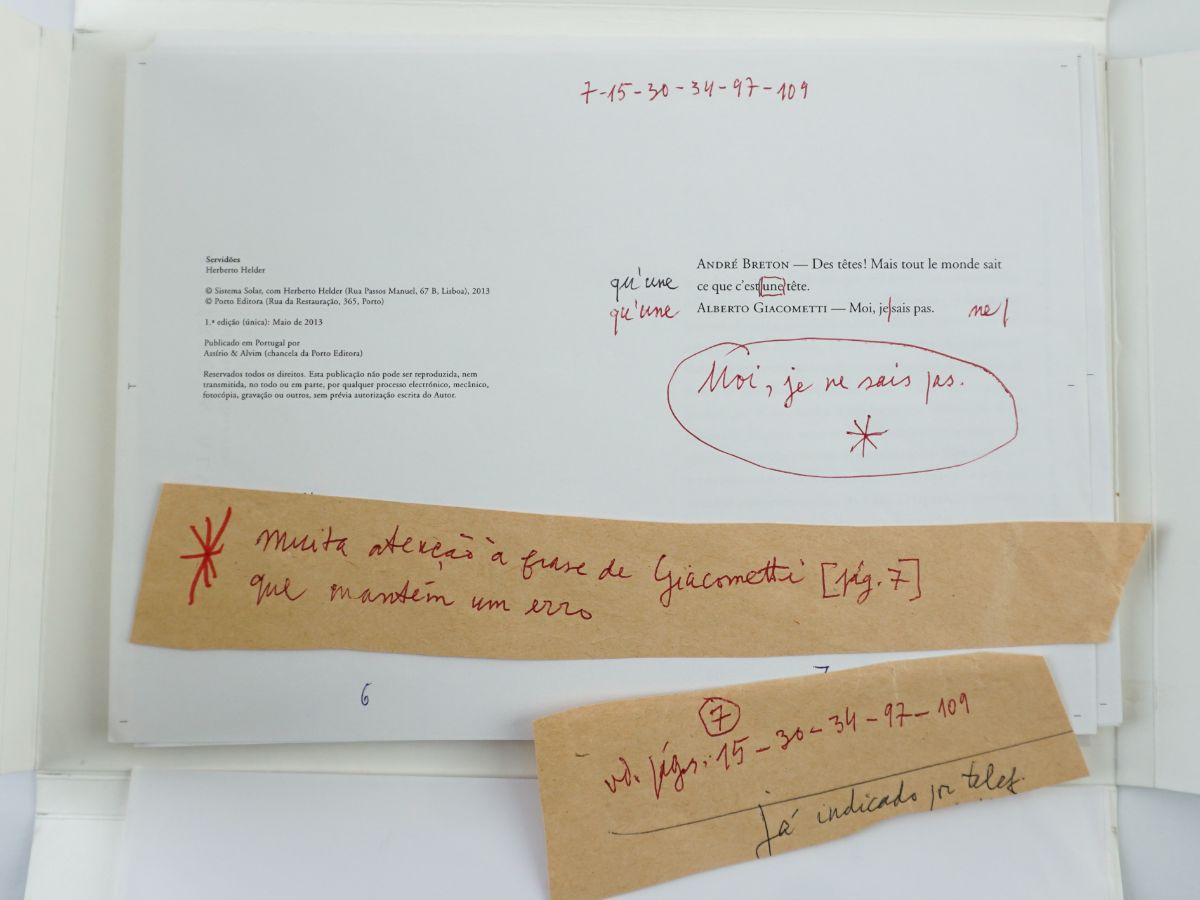 7-15-30-34-97-109
Servidões
Herberto Helder
© Sistema Solar, com Herberto Helder (Rua Passos Manuel, 67 B, Lisboa), 2013
© Porto Editora (Rua da Restauração, 365, Porto)
1.ª edição (única): Maio de 2013
Publicado em Portugal por
Assírio & Alvim (chancela da Porto Editora)
Reservados todos os direitos. Esta publicação não pode ser reproduzida, nem
transmitida, no todo ou em parte, por qualquer processo electrónico, mecânico,
fotocópia, gravação ou outros, sem prévia autorização escrita do Autor.
André Breton — Des têtes! Mais tout le monde sait
qu'une ce que c'est une tête.
qu'une Alberto Giacometti — Moi, je sais pas. ne
Moi, je ne sais pas.
*
* Muita atenção à frase de Giacometti [pág. 7]
que mantém um erro
6
7
7
vd. págs. 15-30-34-97-109
Já indicado por telef.